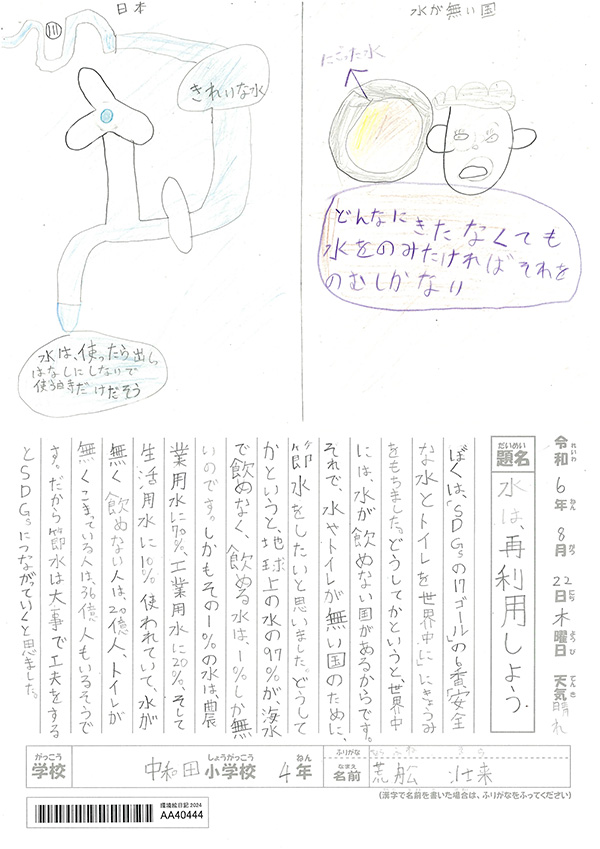 日本
きれいな水
水は、使ったら出し
はなしにしないで
使う時だけだそう
水が無い国
にごった水
どんなにきたなくても
水をのみたければそれを
のむしかない
令和6年8月22日木曜日 天気 晴れ
れいわ ねん がつ にち ようび てんき
だいめい
題名 水は、再利用しよう。
ぼくは、「SDGsの17ゴール」の6番「安全
な水とトイレを世界中に」にきょうみ
をもちました。どうしてかというと、世界中
には、水が飲めない国があるからです。
それで、水やトイレが無い国のために、
節水をしたいと思いました。どうして
かというと、地球上の水の97%が海水
で飲めなく、飲める水は、1%しか無
いのです。しかもその1%の水は、農
業用水に70%、工業用水に20%、そして
生活用水に10%使われていて、水が
無く飲めない人は、20億人、トイレが
無くこまっている人は、36億人もいるそうで
す。だから節水は大事で工夫をする
とSDGsにつながっていくと思いました。
がっこう しょうがっこう ねん ふりがな
学校 中和田小学校 4年 なまえ 名前 荒舩 壮来
(漢字で名前を書いた場合は、ふりがなをふってください)
環境絵日記2024
AA40444